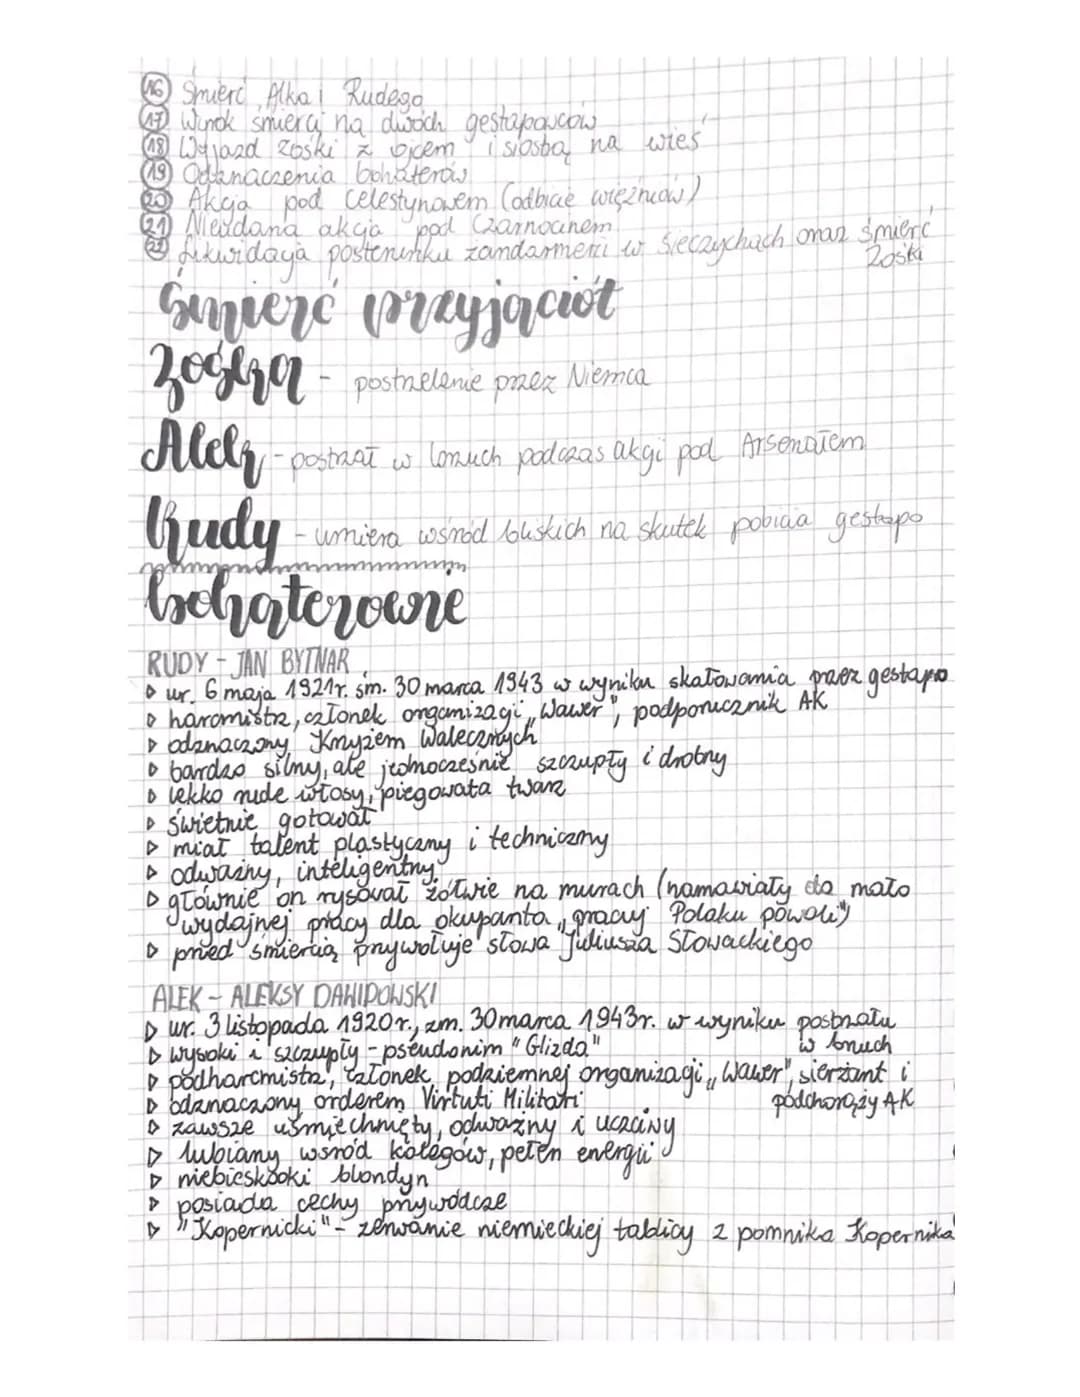 16 Śmierć Alka i Rudego
17 Wyrok śmierci na dwóch gestapowców
18 Wyjazd Zośki z ojcem i siostrą na wieś
19 Odznaczenia bohaterów
20 Akcja pod Celestynowem (odbicie więźniów)
21 Nieudana akcja pod Czarnocinem
22 Likwidacja posterunku żandarmerii w Sieczychach oraz śmierć
Zośki
Śmierć przyjaciół
Zośka - postrzelenie przez Niemca
Alek - postrzał w brzuch podczas akcji pod Arsenałem
Rudy - umiera wśród bliskich na skutek pobicia gestapo
bohaterowie
RUDY - JAN BYTNAR
▷ ur. 6 maja 1921r. śm. 30 marca 1943 w wyniku skatowania przez gestapo
▷ harcmistrz, członek organizacji „Wawer", podporucznik AK
▷ odznaczony Krzyżem Walecznych
▷ bardzo silny, ale jednocześnie szczupły i drobny
▷ lekko rude włosy, piegowata twarz
▷ świetnie gotował
▷ miał talent plastyczny i techniczny
▷ odważny, inteligentny
▷ głównie on rysował żółwie na murach (namawiały do mało
wydajnej pracy dla okupanta „pracuj Polaku powoli")
▷ przed śmiercią przywołuje słowa Juliusza Słowackiego
ALEK - ALEKSY DAWIDOWSKI
▷ ur. 3 listopada 1920r., zm. 30 marca 1943r. w wyniku postrzału
w brzuch
▷ wysoki i szczupły - pseudonim "Glizda"
▷ podharcmistrz, członek podziemnej organizacji „Wawer", sierżant i
podchorąży AK
▷ odznaczony orderem Virtuti Militari
▷ zawsze uśmiechnięty, odważny i uczciwy
▷ lubiany wśród kolegów, pełen energii
▷ niebieskooki blondyn
▷ posiada cechy przywódcze
▷ "Kopernicki" - zerwanie niemieckiej tablicy z pomnika Kopernika